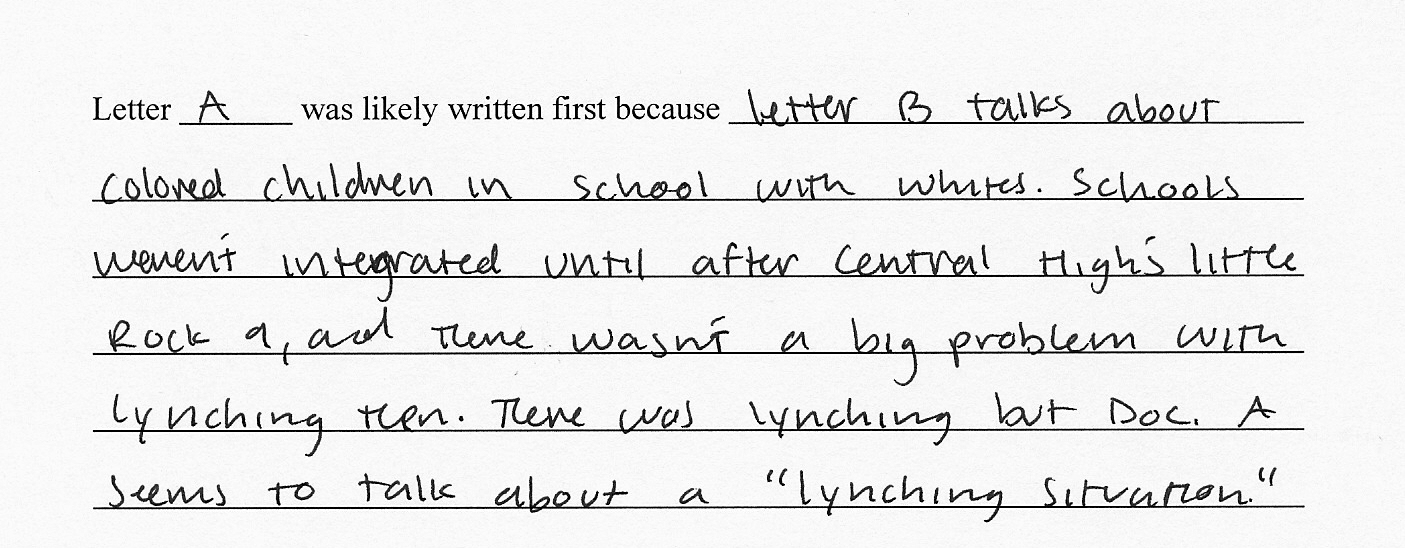 Letter A was likely written first because letter B talks about
colored children in school with whites. Schools
weren't integrated until after Central High's little
Rock 9, and there wasn't a big problem with
lynching then. There was lynching but Doc. A
seems to talk about a "lynching situation."